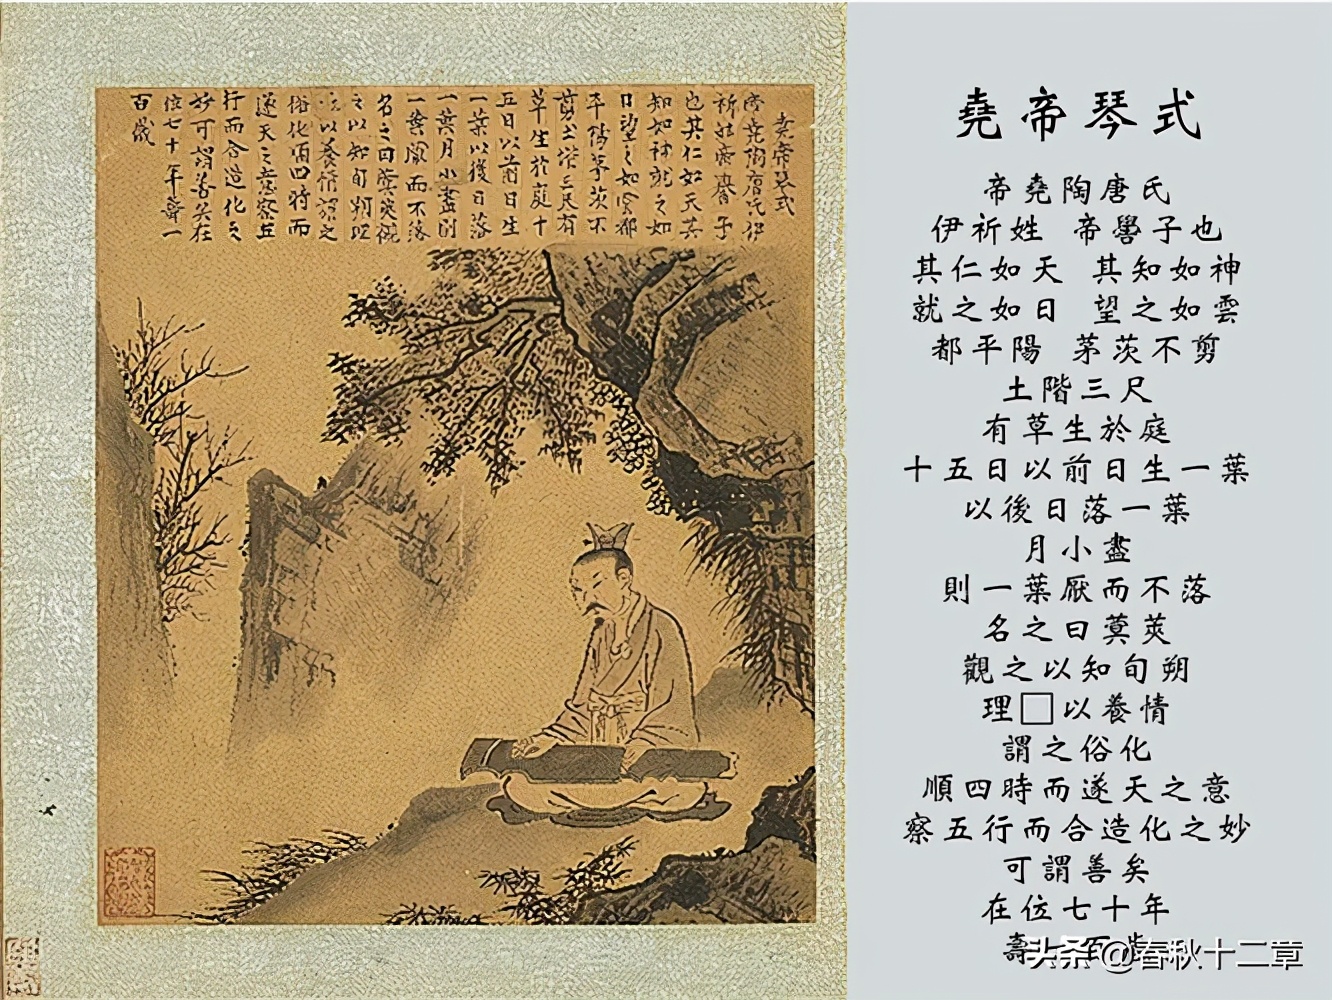 堯帝琴式
帝堯陶唐氏伊
祈姓帝嚳子
也其仁如天其
知如神就之如
日望之如雲都
平陽茅茨不
剪土堦三尺有
草生於庭十
五日以前日生
一葉以後日落
一葉月小盡則
一葉厭而不落
名之曰蓂莢觀
之以知旬朔理
以養情謂之
俗化順四時而
遂天之意察五
行而合造化之
妙可謂善矣在
位七十年壽一
百歲
堯帝琴式
帝堯陶唐氏
伊祈姓 帝嚳子也
其仁如天 其知如神
就之如日 望之如雲
都平陽 茅茨不剪
土階三尺
有草生於庭
十五日以前日生一葉
以後日落一葉
月小盡
則一葉厭而不落
名之曰蓂莢
觀之以知旬朔
理□以養情
謂之俗化
順四時而遂天之意
察五行而合造化之妙
可謂善矣
在位七十年
壽一百歲
头条@春秋十二章